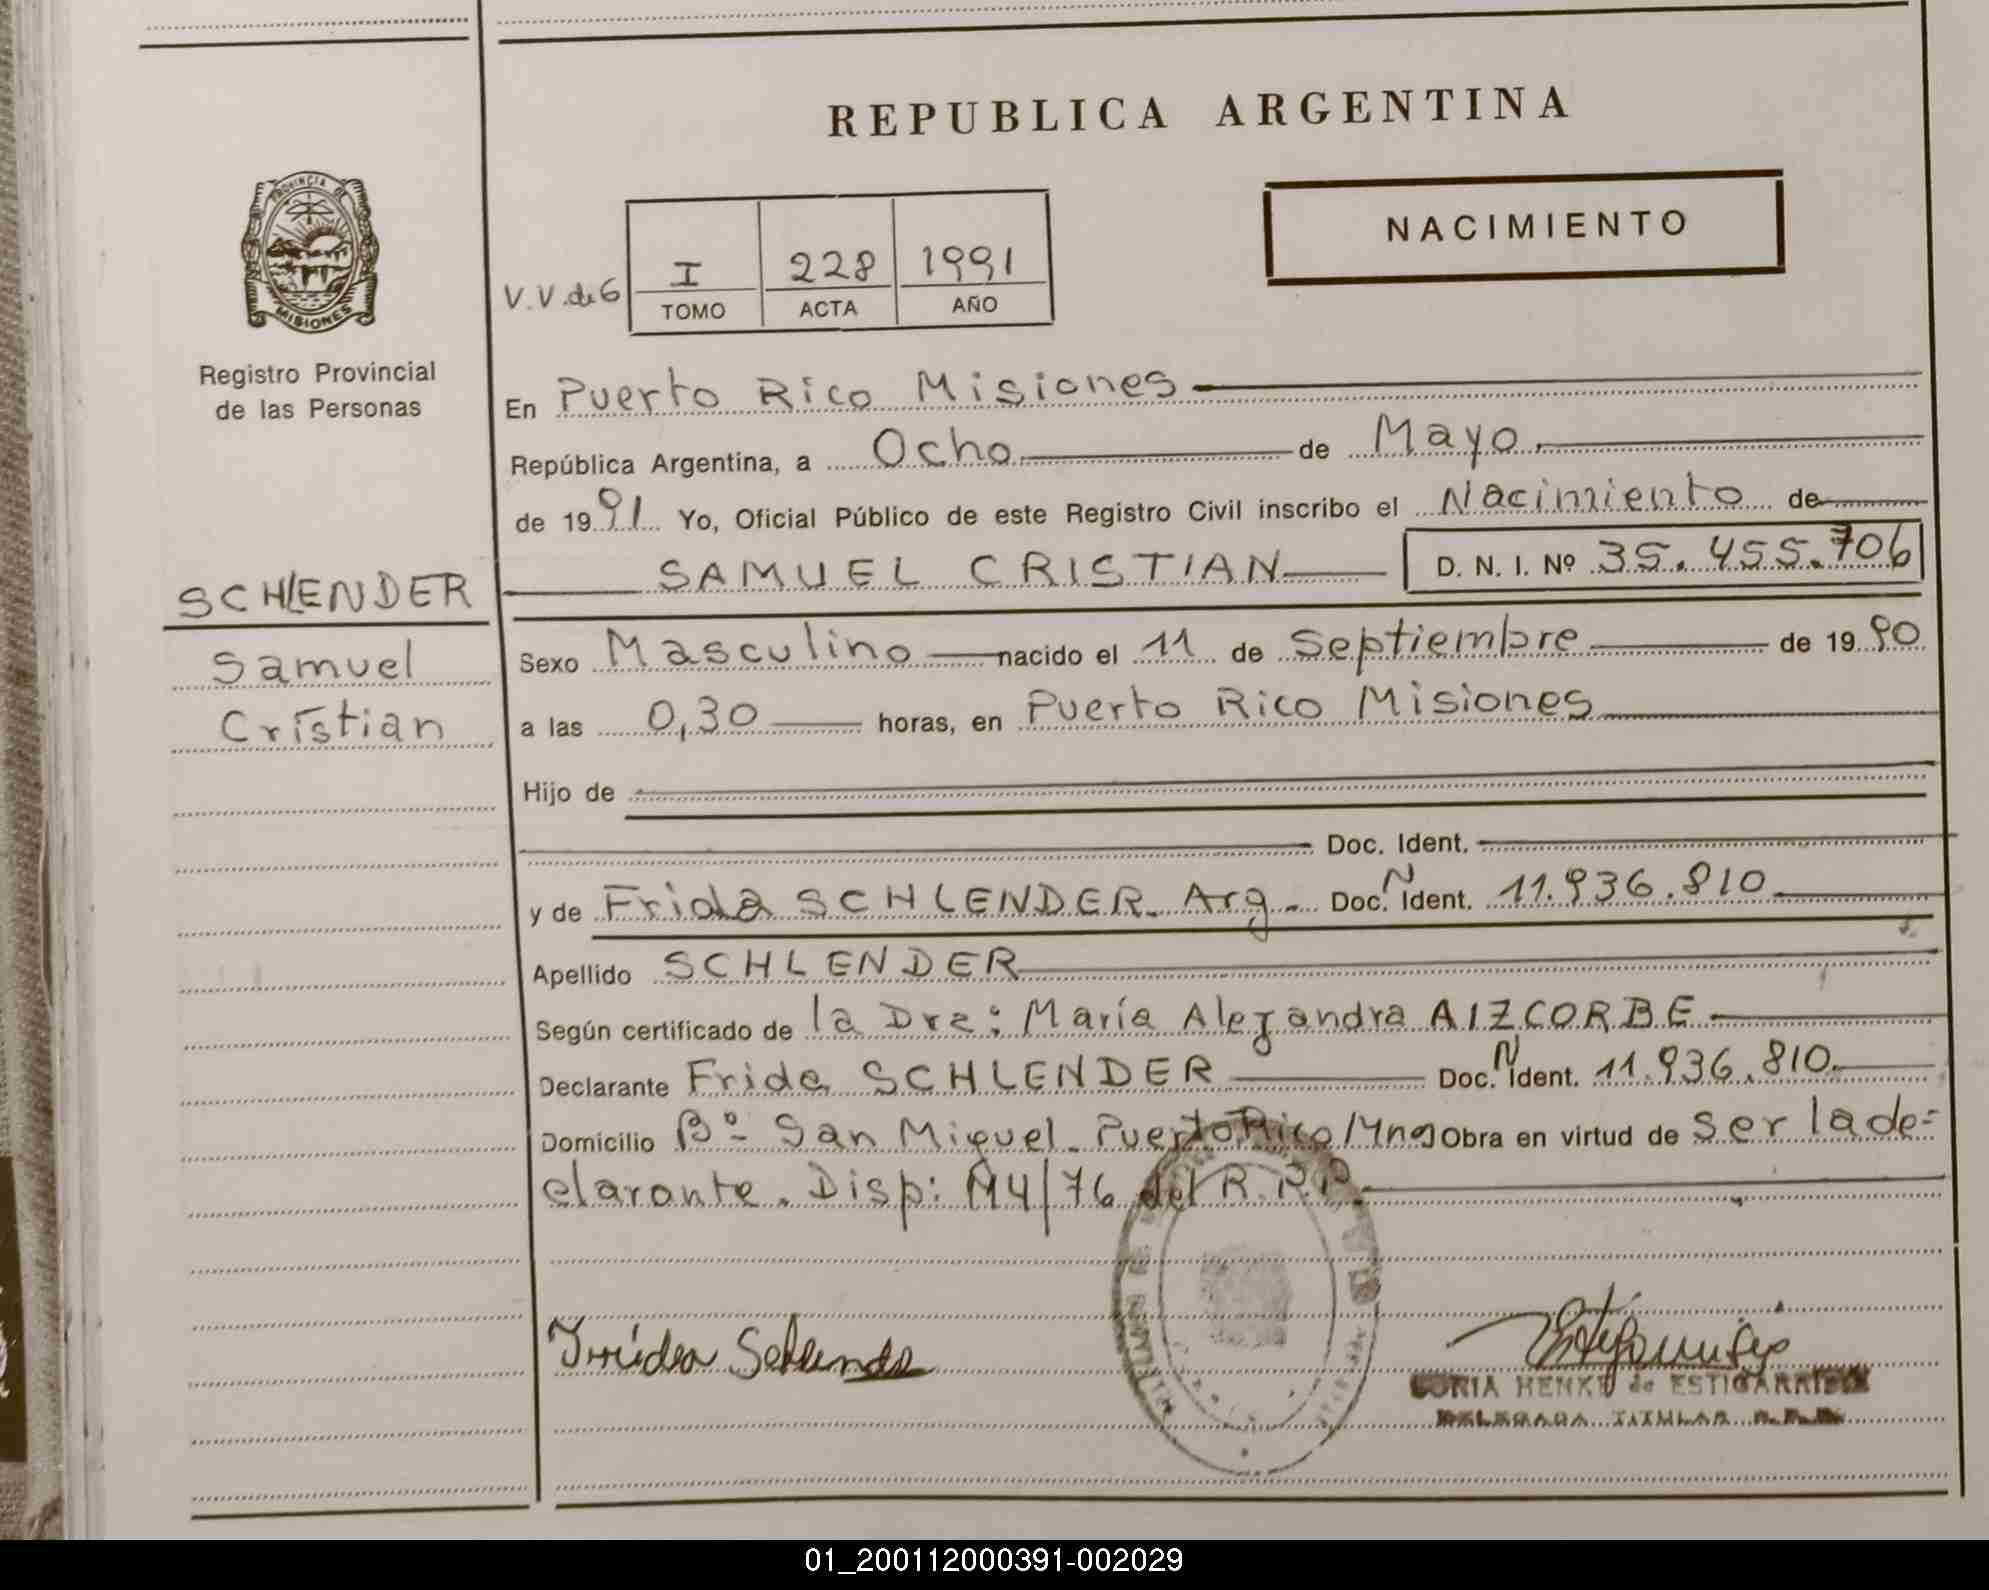 REPUBLICA ARGENTINA
NACIMIENTO
PROVINCIA DE
MISIONES
Registro Provincial
de las Personas
V.V. de G
I 228 1991
TOMO ACTA AÑO
En Puerto Rico Misiones
República Argentina, a Ocho de Mayo
de 1991 Yo, Oficial Público de este Registro Civil inscribo el Nacimiento de
SAMUEL CRISTIAN D. N. I. Nº 35.455.706
SCHLENDER
Samuel
Cristian
Sexo Masculino nacido el 11 de Septiembre de 1990
a las 0,30 horas, en Puerto Rico Misiones
Hijo de
Doc. Ident.
y de Frida SCHLENDER. Arg. Doc. N Ident. 11.936.810
Apellido SCHLENDER
Según certificado de la Dra: María Alejandra AIZCORBE
Declarante Frida SCHLENDER Doc. N Ident. 11.936.810
Domicilio Bº San Miguel. Puerto Rico/Mnes Obra en virtud de ser la de=
clarante. Disp: 114/76 del R.P.P.
HENKE de ESTIGARRIBIA
DELEGADA TITULAR R.P.P.
01_200112000391-002029